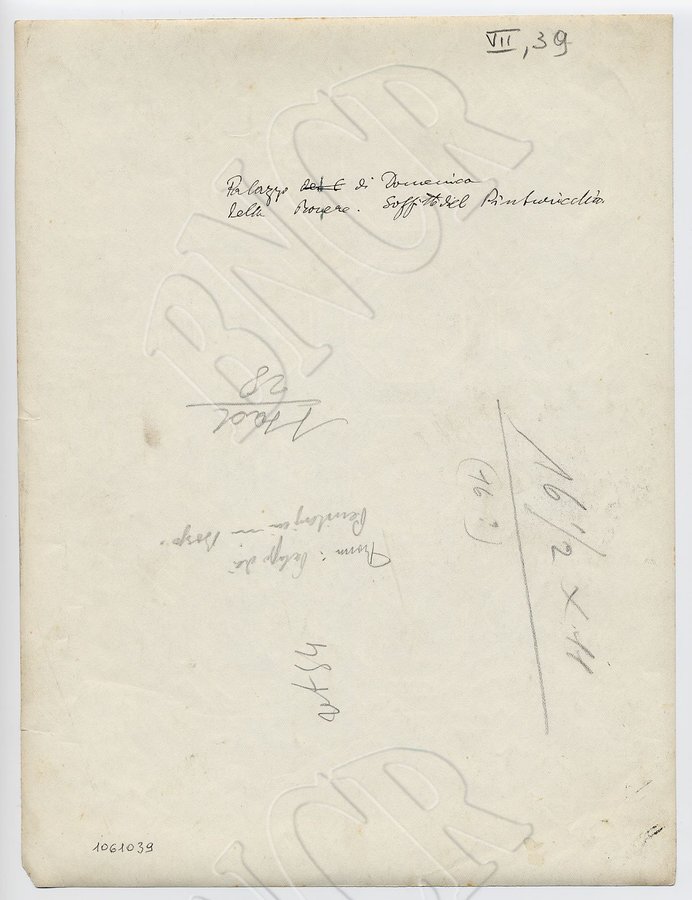 VII, 39
Palazzo di Domenico
della Rovere. Soffitto del Pinturicchio
28
Roma: Palazzo dei
Penitenzieri in Borgo
16 1/2 x 11
(16?)
1061039
BNCR
BNCR